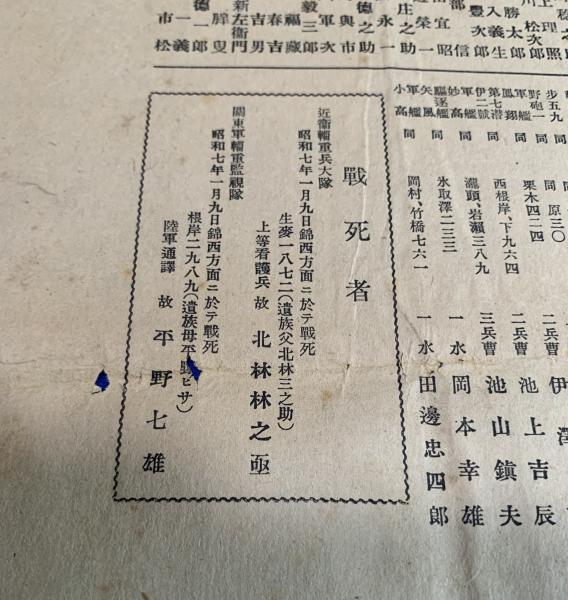 庄之助
永一
德之助
與市
軍次
毅三郎
福藏
春吉
吉男
新左衞門
德二郎
一義
市松
鳳翔
第七潛
伊二號
軍艦
妙高
驅逐艦
矢風
軍艦
小高
同 原三〇
栗木四二四
西根岸、下九六四
瀧頭、岩瀨三八九
氷取澤二三三
岡村、竹橋七六一
二兵曹 池上吉辰
三兵曹 池山鎭夫
一水 岡本幸雄
一水 田邊忠四郎
戰死者
近衞輜重兵大隊
昭和七年一月九日錦西方面ニ於テ戰死
生麥一八七二(遺族父北林三之助)
上等看護兵 故 北林林之
關東軍輜重監視隊
昭和七年一月九日錦西方面ニ於テ戰死
根岸二九八九(遺族母平野ヒサ)
陸軍通譯 故 平野七雄